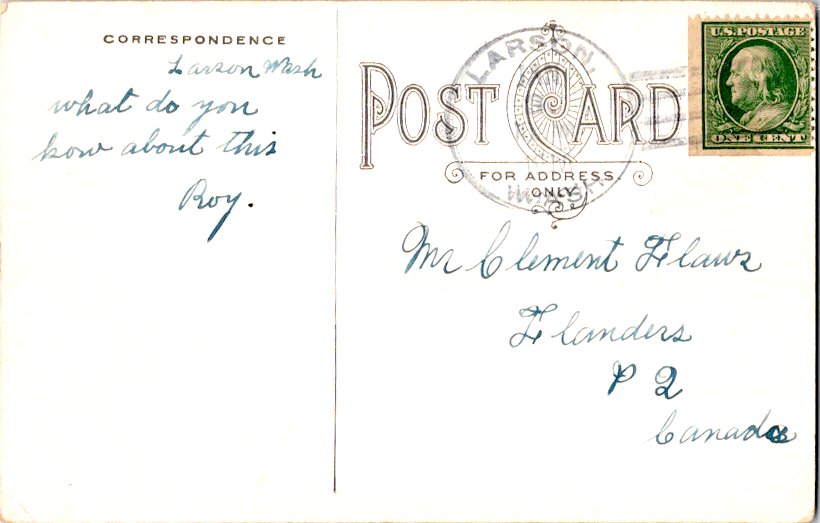 CORRESPONDENCE
Larson Wash
what do you
kow about this
Roy.
POST CARD
FOR ADDRESS
ONLY
LARSON,
WASH.
U.S. POSTAGE
ONE CENT
Mr Clement Flaws
Flanders
P Q
Canada